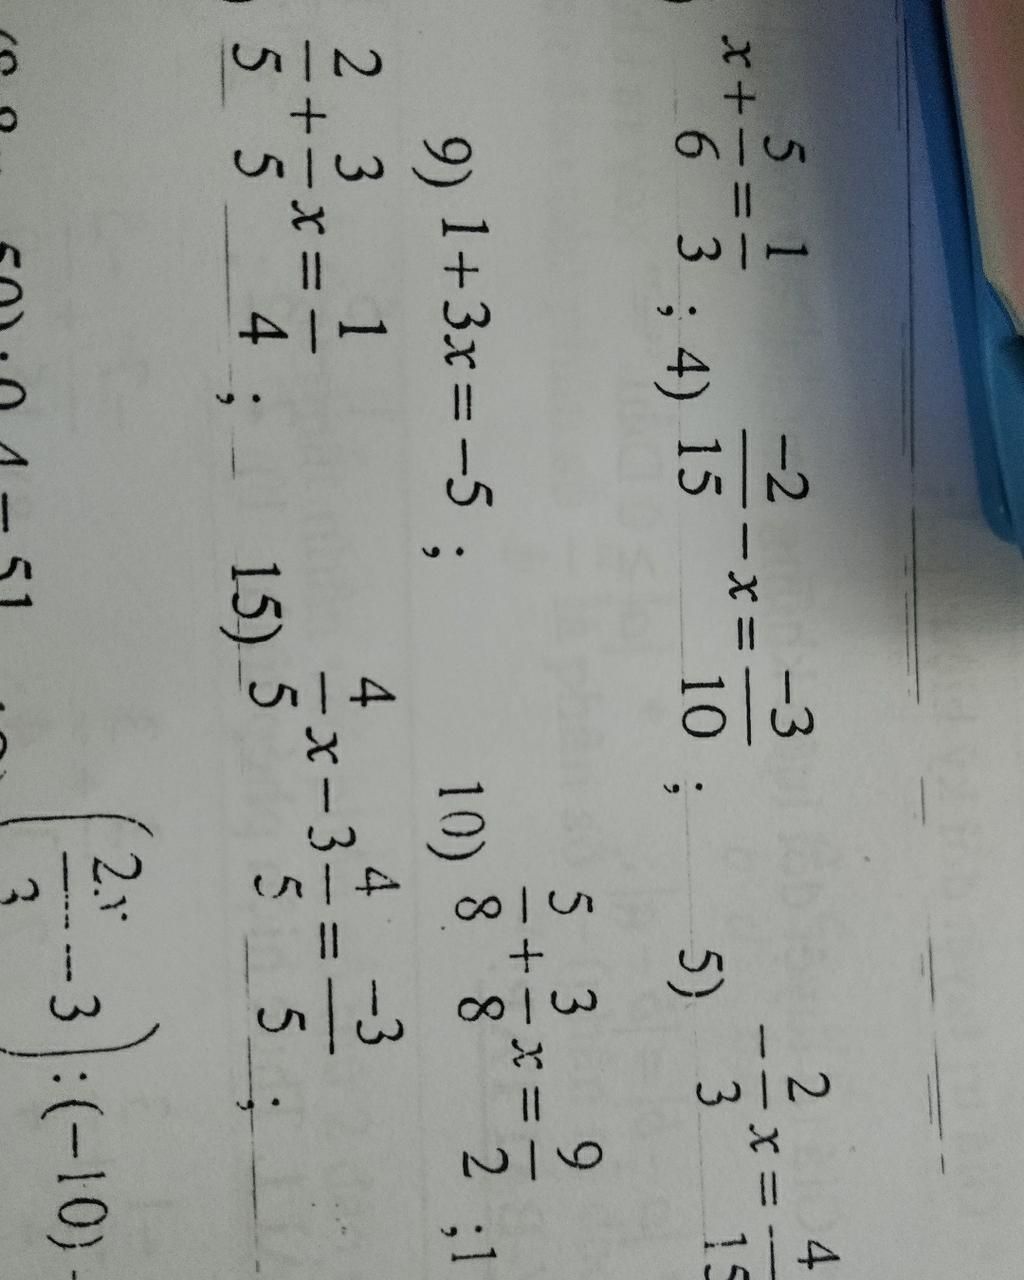 x + 5/6 = 1/3 ; 4) -2/15 - x = -3/10 ; 5) -2/3 x = 4/15
9) 1 + 3x = -5 ; 10) 5/8 + 3/8 x = 9/2 ; 1
2/5 + 3/5 x = 1/4 ; 15) 4/5 x - 3 4/5 = -3/5 ;
50) : 0,4 = 51 (2x/3 - 3) : (-10)